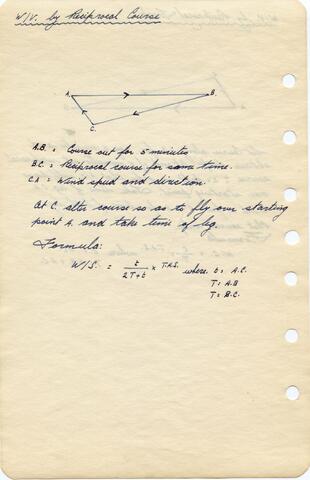 W/V. by Reciprocal Course
A. B.
C.
A.B = Course out for 5 minutes
B.C. = Reciprocal course for same time.
C.A = Wind speed and direction.
At C. alter course so as to fly over starting
point A. and take time of leg.
Formula:
W/S. = t / 2T+t × T.A.S. where t = A.C.
T = A.B
T = B.C.